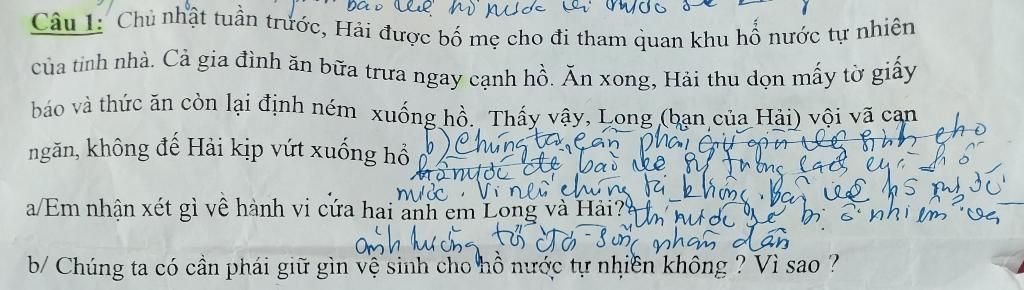 bảo vệ hồ nước
Câu 1: Chủ nhật tuần trước, Hải được bố mẹ cho đi tham quan khu hồ nước tự nhiên
của tỉnh nhà. Cả gia đình ăn bữa trưa ngay cạnh hồ. Ăn xong, Hải thu dọn mấy tờ giấy
báo và thức ăn còn lại định ném xuống hồ. Thấy vậy, Long (bạn của Hải) vội vã can
ngăn, không để Hải kịp vứt xuống hồ
b) Chúng ta cần phải giữ gìn vệ sinh cho
hồ nước để bảo vệ sự trong sạch của hồ
nước. Vì nếu chúng ta không bảo vệ hồ nước
a/Em nhận xét gì về hành vi cứa hai anh em Long và Hải?
thì nước sẽ bị ô nhiễm và
ảnh hưởng tới đời sống nhân dân
b/ Chúng ta có cần phái giữ gìn vệ sinh cho hồ nước tự nhiên không ? Vì sao ?